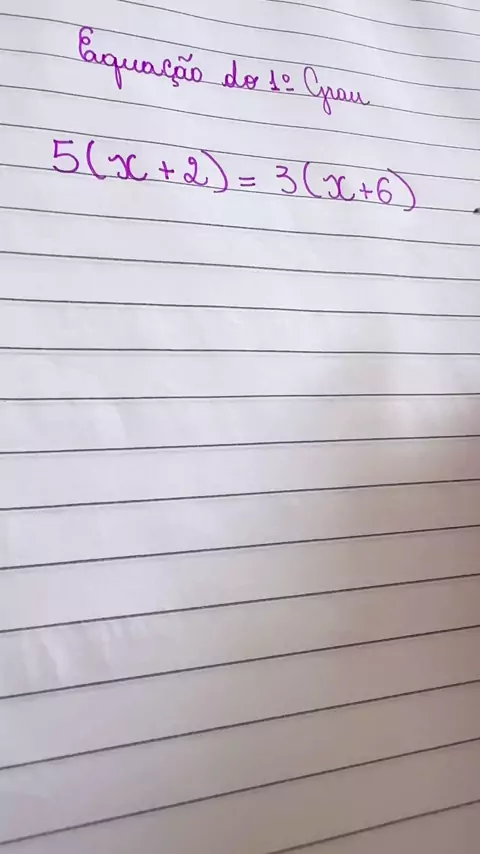 Equação do 1º Grau
5(x+2)=3(x+6)